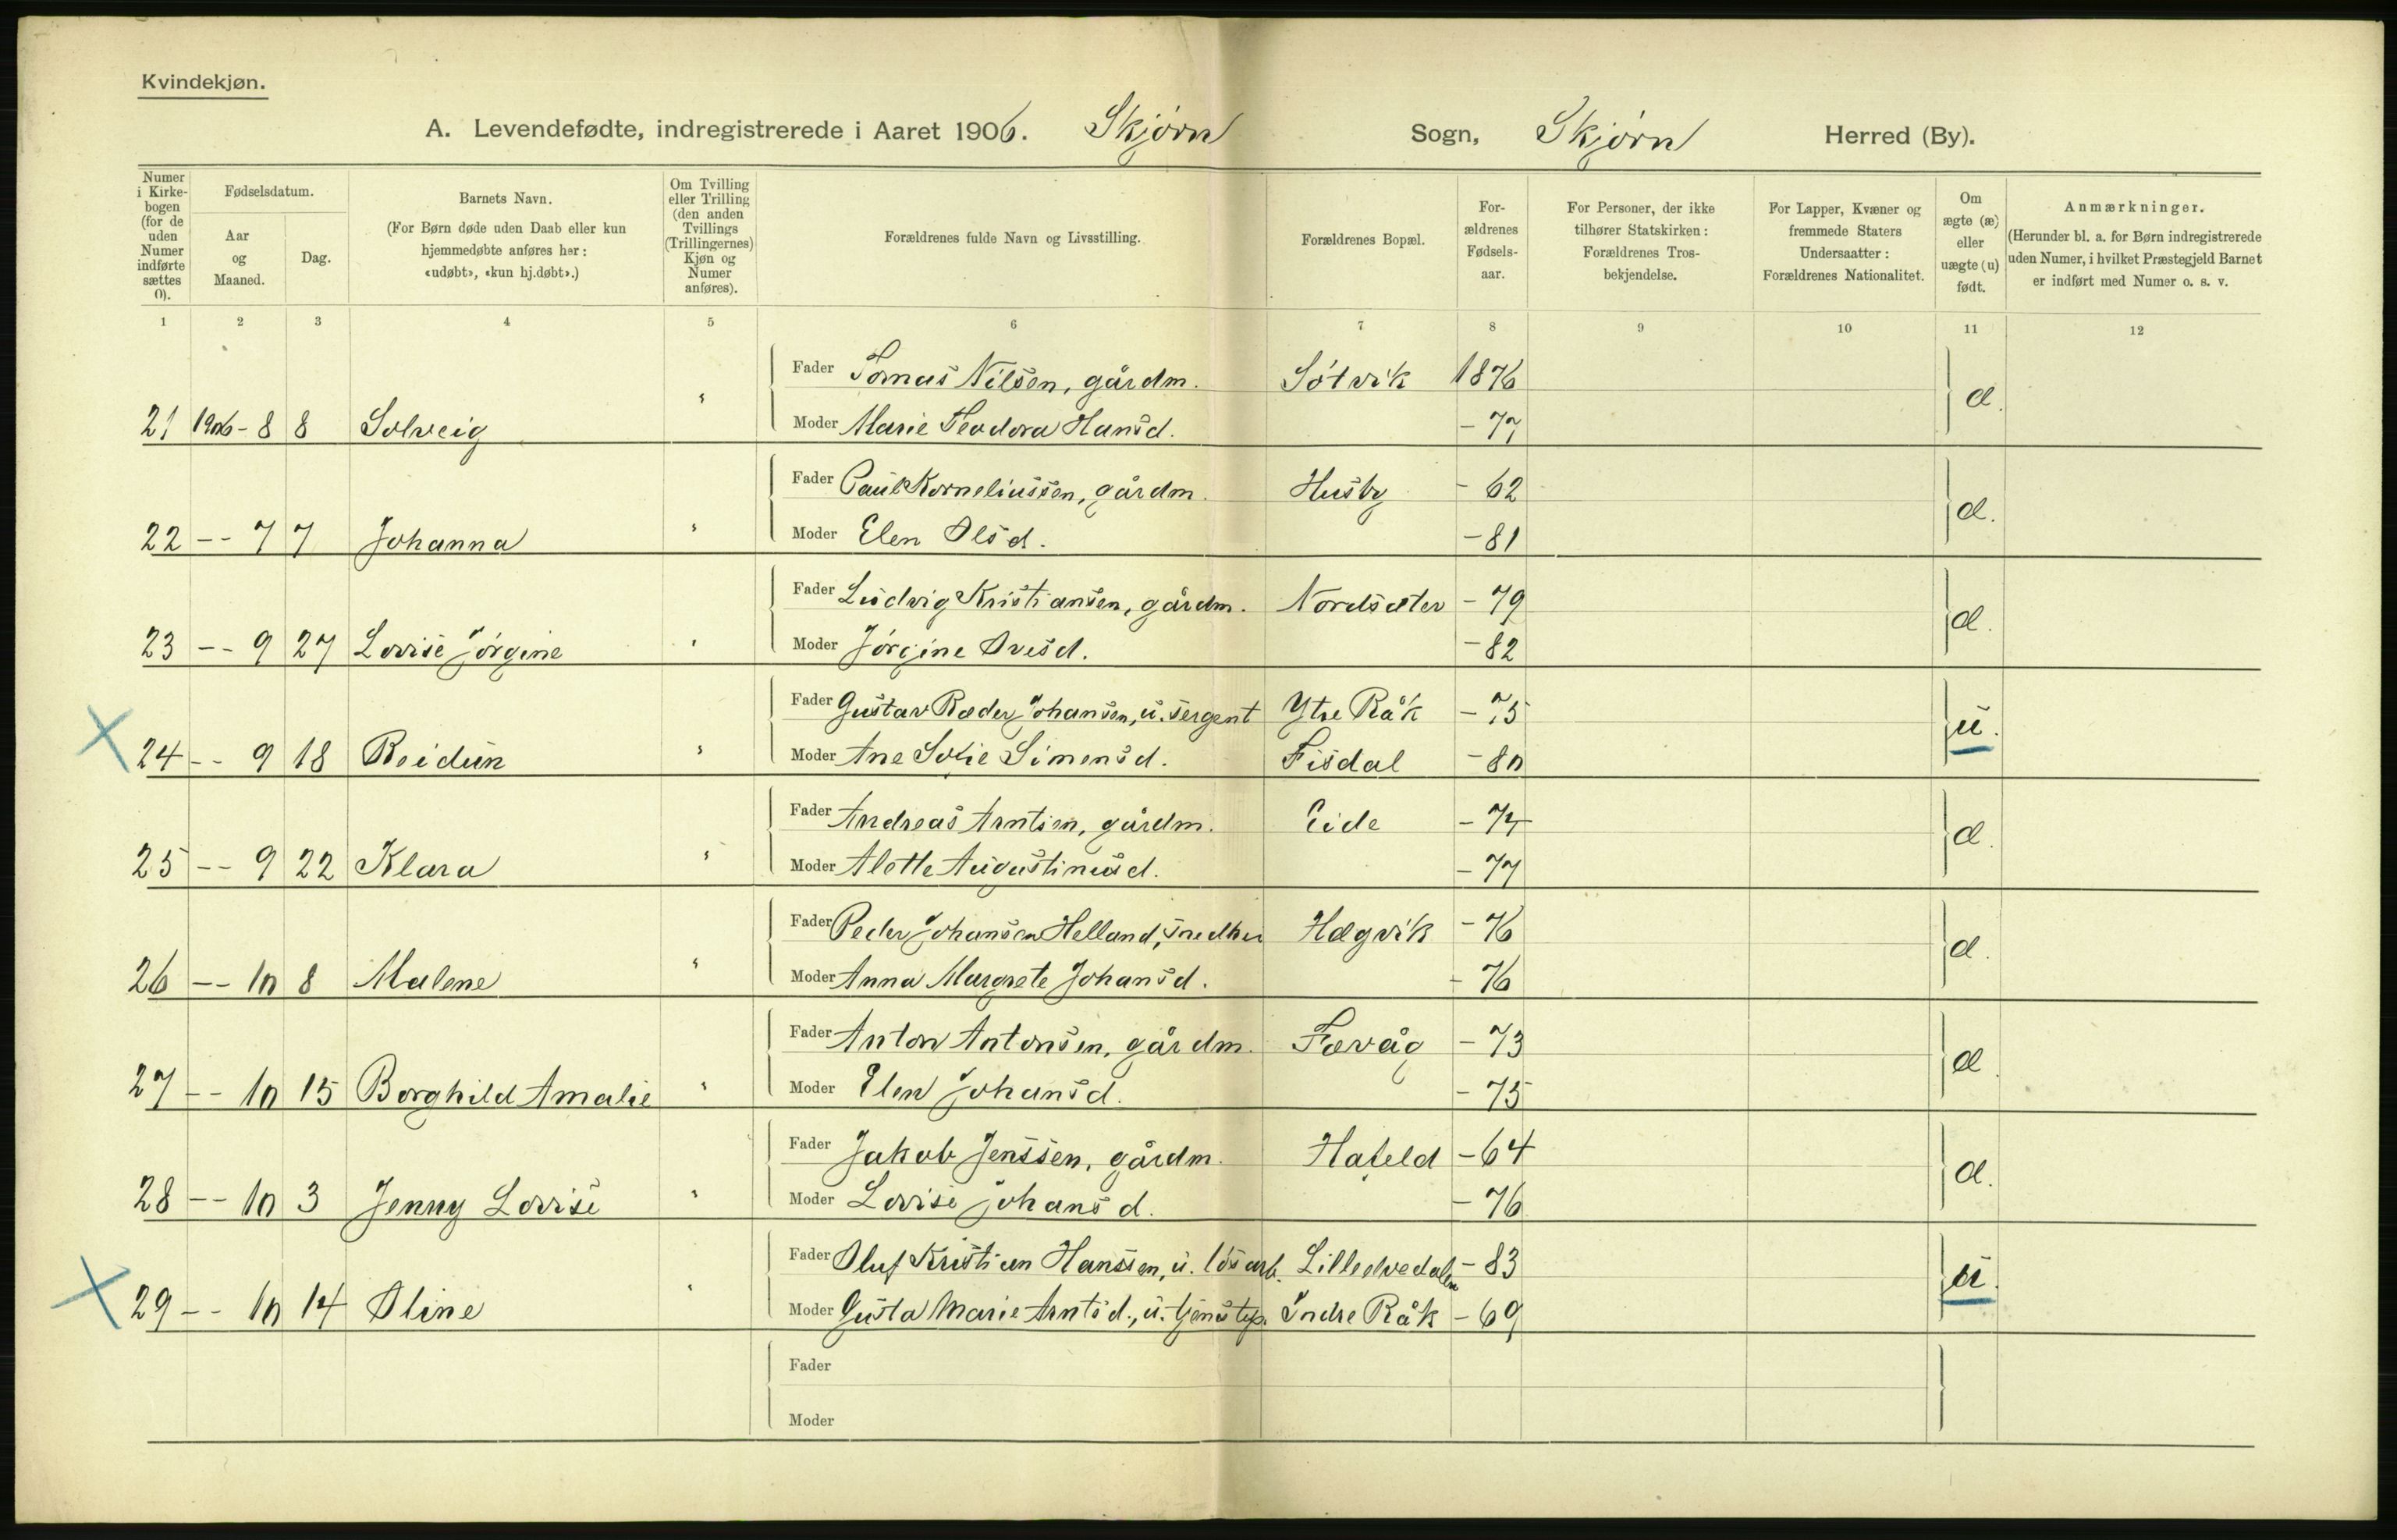 Kvindekjøn.
A. Levendefødte, indregistrerede i Aaret 1906. Skjørn Sogn, Skjørn Herred (By).
Numer i Kirkebogen (for de uden Numer indførte sættes 0).
Fødselsdatum.
Aar og Maaned.
Dag.
Barnets Navn.
(For Børn døde uden Daab eller kun hjemmedøbte anføres her: «udøbt», «kun hj.døbt».)
Om Tvilling eller Trilling (den anden Tvillings (Trillingernes) Kjøn og Numer anføres).
Forældrenes fulde Navn og Livsstilling.
Forældrenes Bopæl.
Forældrenes Fødselsaar.
For Personer, der ikke tilhører Statskirken: Forældrenes Trosbekjendelse.
For Lapper, Kvæner og fremmede Staters Undersaatter: Forældrenes Nationalitet.
Om ægte (æ) eller uægte (u) født.
Anmærkninger.
(Herunder bl. a. for Børn indregistrerede uden Numer, i hvilket Præstegjeld Barnet er indført med Numer o. s. v.
1 2 3 4 5 6 7 8 9 10 11 12
Fader Tomas Nilsen, gårdm. Søtvik 1876 æ.
21 1906 - 8 8 Solveig " Moder Marie Teodora Hansd. - 77
Fader Paul Korneliussen, gårdm. Husby - 62 æ.
22 - - 7 7 Johanna " Moder Elen Olsd. - 81
Fader Ludvig Kristiansen, gårdm. Nordsæter - 79 æ.
23 - - 9 27 Lovise Jørgine " Moder Jørgine Ovesd. - 82
Fader Gustav Røder Johansen, u. sergent Ytre Råk - 75 u.
24 - - 9 18 Reidun " Moder Ane Sofie Simensd. Fisdal - 80
Fader Andreas Arntsen, gårdm. Eide - 74 æ.
25 - - 9 22 Klara " Moder Alette Augustinusd. - 77
Fader Peder Johansen Helland, snedker Hægvik - 76 æ.
26 - - 10 8 Malene " Moder Anna Margrete Johansd. - 76
Fader Anton Antonsen, gårdm. Fævåg - 73 æ.
27 - - 10 15 Borghild Amalie " Moder Elen Johansd. - 75
Fader Jakob Jenssen, gårdm. Hafeld - 64 æ.
28 - - 10 3 Jenny Lovise " Moder Lovise Johansd. - 76
Fader Oluf Kristian Hanssen, u. løsarb. Lilleelvedalen - 83 u.
29 - - 10 14 Oline " Moder Gusta Marie Arntsd., u. tjenstep. Indre Råk - 69
Fader
Moder